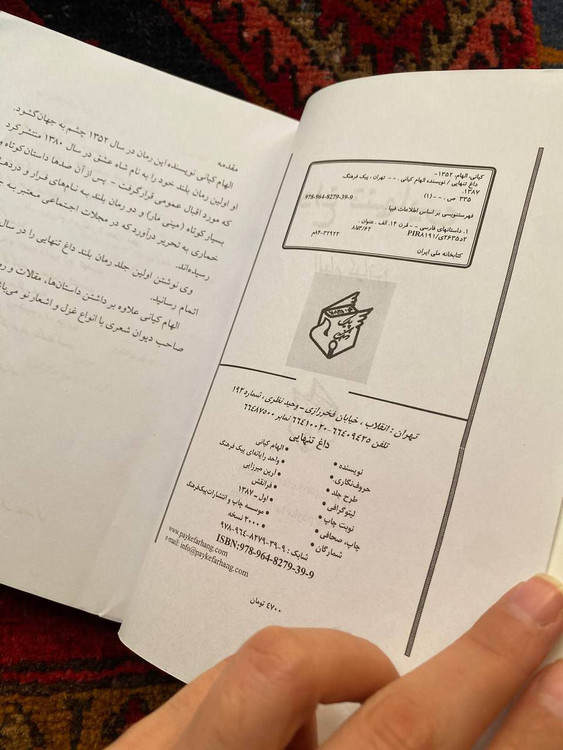 مقدمه
الهام کیانی نویسنده این رمان در سال ۱۳۵۲ چشم به جهان گشود.
او اولین رمان بلند خود را به نام شاه عشق در سال ۱۳۸۰ منتشر کرد
که مورد اقبال عمومی قرار گرفت – پس از آن صدها داستان کوتاه و
بسیار کوتاه (مینی مار) و دو رمان بلند به نام‌های فرار و دردهـ
خماری به تحریر درآورد که در مجلات اجتماعی معتبر به
رسیده‌اند.
وی نوشتن اولین جلد رمان بلند داغ تنهایی را در سال
اتمام رسانید.
الهام کیانی علاوه بر داشتن داستان‌ها، مقالات و
صاحب دیوان شعری با انواع غزل و اشعار نو می‌باشـ
کیانی، الهام، ۱۳۵۲-
داغ تنهایی / نویسنده الهام کیانی. -- تهران: پیک فرهنگ،
۱۳۸۷.
۳۳۵ ص. -- (۱)
978-964-8279-39-9
فهرستنویسی بر اساس اطلاعات فیپا.
۱. داستانهای فارسی -- قرن ۱۴. الف. عنوان.
۲د۲۶۳۵ی/PIR۸۱۹۱ ۸فا۳/۶۲
کتابخانه ملی ایران ۳۲۹۲۲-۸۴م
پیک فرهنگ
تهران: انقلاب، خیابان فخررازی – وحید نظری، شماره ۱۹۲
تلفن ۶۶۴۰۹۴۲۵–۶۶۴۱۰۰۲۰ نمابر ۶۶۴۸۷۵۰۰
داغ تنهایی
• نویسنده • الهام کیانی
• حروف‌نگاری • واحد رایانه‌ای پیک فرهنگ
• طرح جلد • آرین میرزایی
• لیتوگرافی • فرانقش
• نوبت چاپ • اول – ۱۳۸۷
• چاپ، صحافی • موسسه چاپ و انتشارات پیک فرهنگ
• شمارگان • ۲۰۰۰ نسخه
شابک: ۹-۳۹-۸۲۷۹-۹۶۴-۹۷۸
ISBN:978-964-8279-39-9
www.paykefarhang.com
e-mail: info@paykefarhang.com
۴۷۰۰ تومان